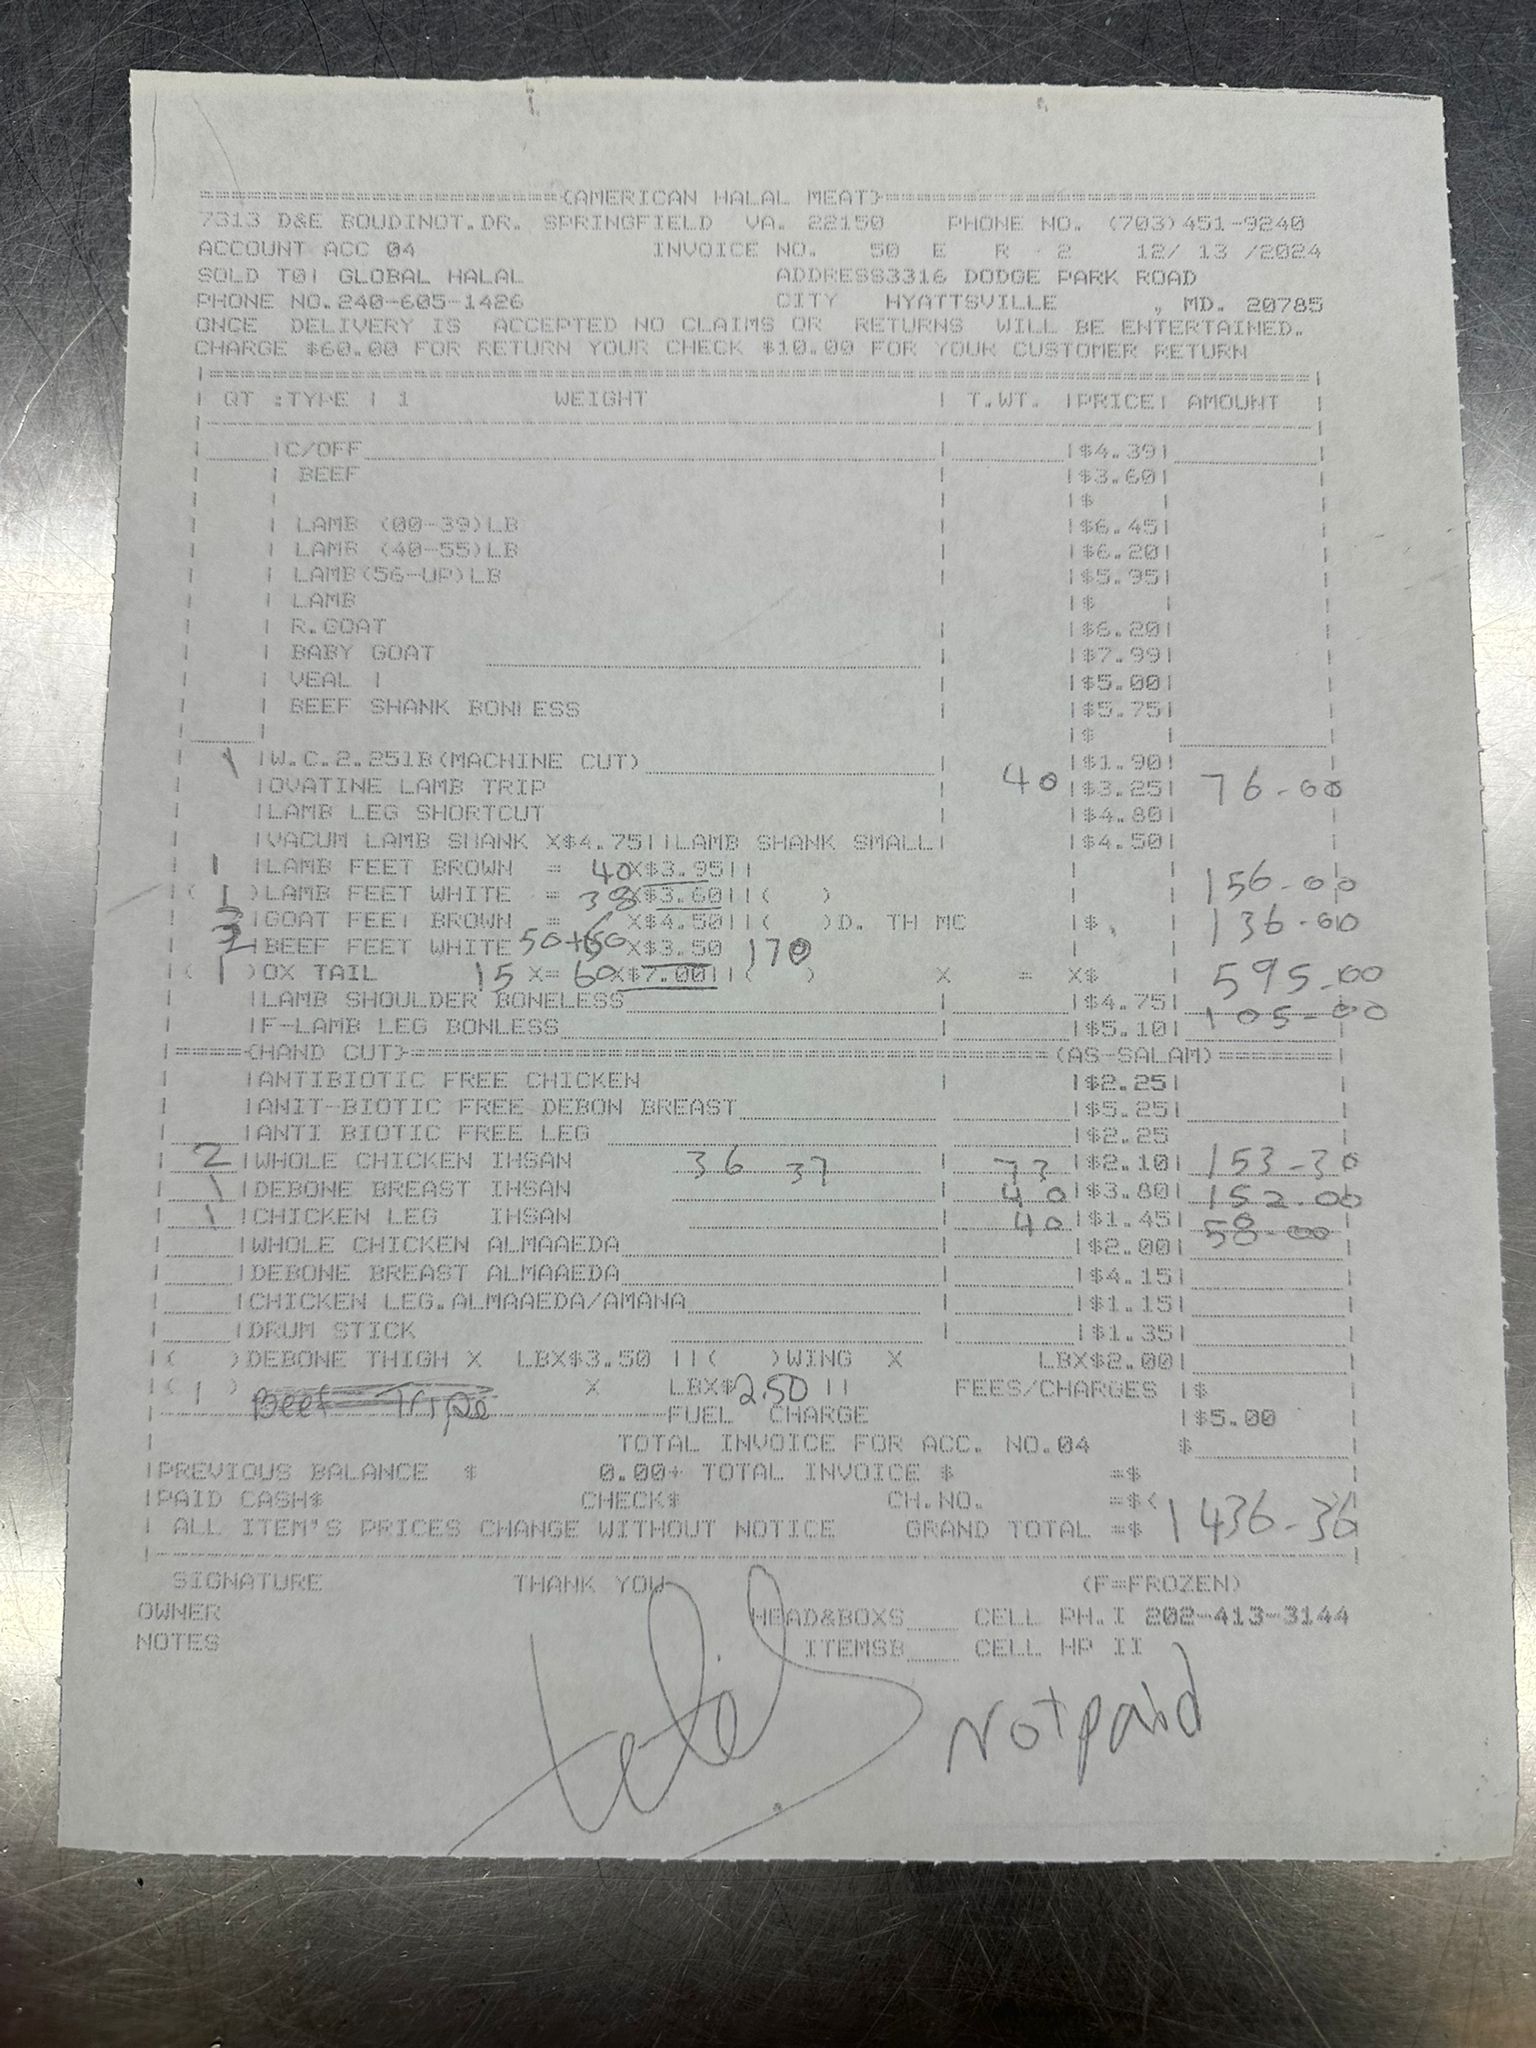 ===={AMERICAN HALAL MEAT}====
7313 D&E BOUDINOT.DR. SPRINGFIELD VA. 22150 PHONE NO. (703)451-9240
ACCOUNT ACC 04 INVOICE NO. 50 E R 2 12/ 13 /2024
SOLD TO| GLOBAL HALAL ADDRESS3316 DODGE PARK ROAD
PHONE NO.240-605-1426 CITY HYATTSVILLE , MD. 20785
ONCE DELIVERY IS ACCEPTED NO CLAIMS OR RETURNS WILL BE ENTERTAINED.
CHARGE $60.00 FOR RETURN YOUR CHECK $10.00 FOR YOUR CUSTOMER RETURN
QT :TYPE | 1 WEIGHT | T.WT. |PRICE| AMOUNT
|C/OFF |$4.39|
| BEEF |$3.60|
| |$ |
| LAMB (00-39)LB |$6.45|
| LAMB (40-55)LB |$6.20|
| LAMB(56-UP)LB |$5.95|
| LAMB |$ |
| R.GOAT |$6.20|
| BABY GOAT |$7.99|
| VEAL | |$5.00|
| BEEF SHANK BONLESS |$5.75|
| |$ |
1 |W.C.2.25lB(MACHINE CUT) 40 |$1.90| 76-00
|OVATINE LAMB TRIP |$3.25|
|LAMB LEG SHORTCUT |$4.80|
|VACUM LAMB SHANK X$4.75||LAMB SHANK SMALL| |$4.50|
1 |LAMB FEET BROWN = 40X$3.95|| 156-00
( 1 )LAMB FEET WHITE = 38X$3.60||( ) 136-00
3 |GOAT FEET BROWN = X$4.50||( )D. TH MC |$
|BEEF FEET WHITE 50+60 X$3.50 170 595-00
( 1 )OX TAIL 15 X= 60X$7.00||( ) X = X$ 105-00
|LAMB SHOULDER BONELESS |$4.75|
|F-LAMB LEG BONLESS |$5.10|
|====={HAND CUT}====(AS-SALAM)=======|
|ANTIBIOTIC FREE CHICKEN |$2.25|
|ANIT-BIOTIC FREE DEBON BREAST |$5.25|
|ANTI BIOTIC FREE LEG |$2.25
2 |WHOLE CHICKEN IHSAN 36 37 73 |$2.10| 153-30
1 |DEBONE BREAST IHSAN 40 |$3.80| 152.00
1 |CHICKEN LEG IHSAN 40 |$1.45| 58-00
|WHOLE CHICKEN ALMAAEDA |$2.00|
|DEBONE BREAST ALMAAEDA |$4.15|
|CHICKEN LEG.ALMAAEDA/AMANA |$1.15|
|DRUM STICK |$1.35|
|( )DEBONE THIGH X LBX$3.50 ||( )WING X LBX$2.00|
|( 1 ) Beef Tripe X LBX$2.50 || FEES/CHARGES |$
FUEL CHARGE |$5.00
TOTAL INVOICE FOR ACC. NO.04 $
|PREVIOUS BALANCE $ 0.00+ TOTAL INVOICE $ =$
|PAID CASH$ CHECK$ CH.NO. =$<
| ALL ITEM'S PRICES CHANGE WITHOUT NOTICE GRAND TOTAL =$ 1436-30
SIGNATURE THANK YOU (F=FROZEN)
OWNER HEAD&BOXS CELL PH.I 202-413-3144
NOTES ITEMSB CELL HP II
Not paid